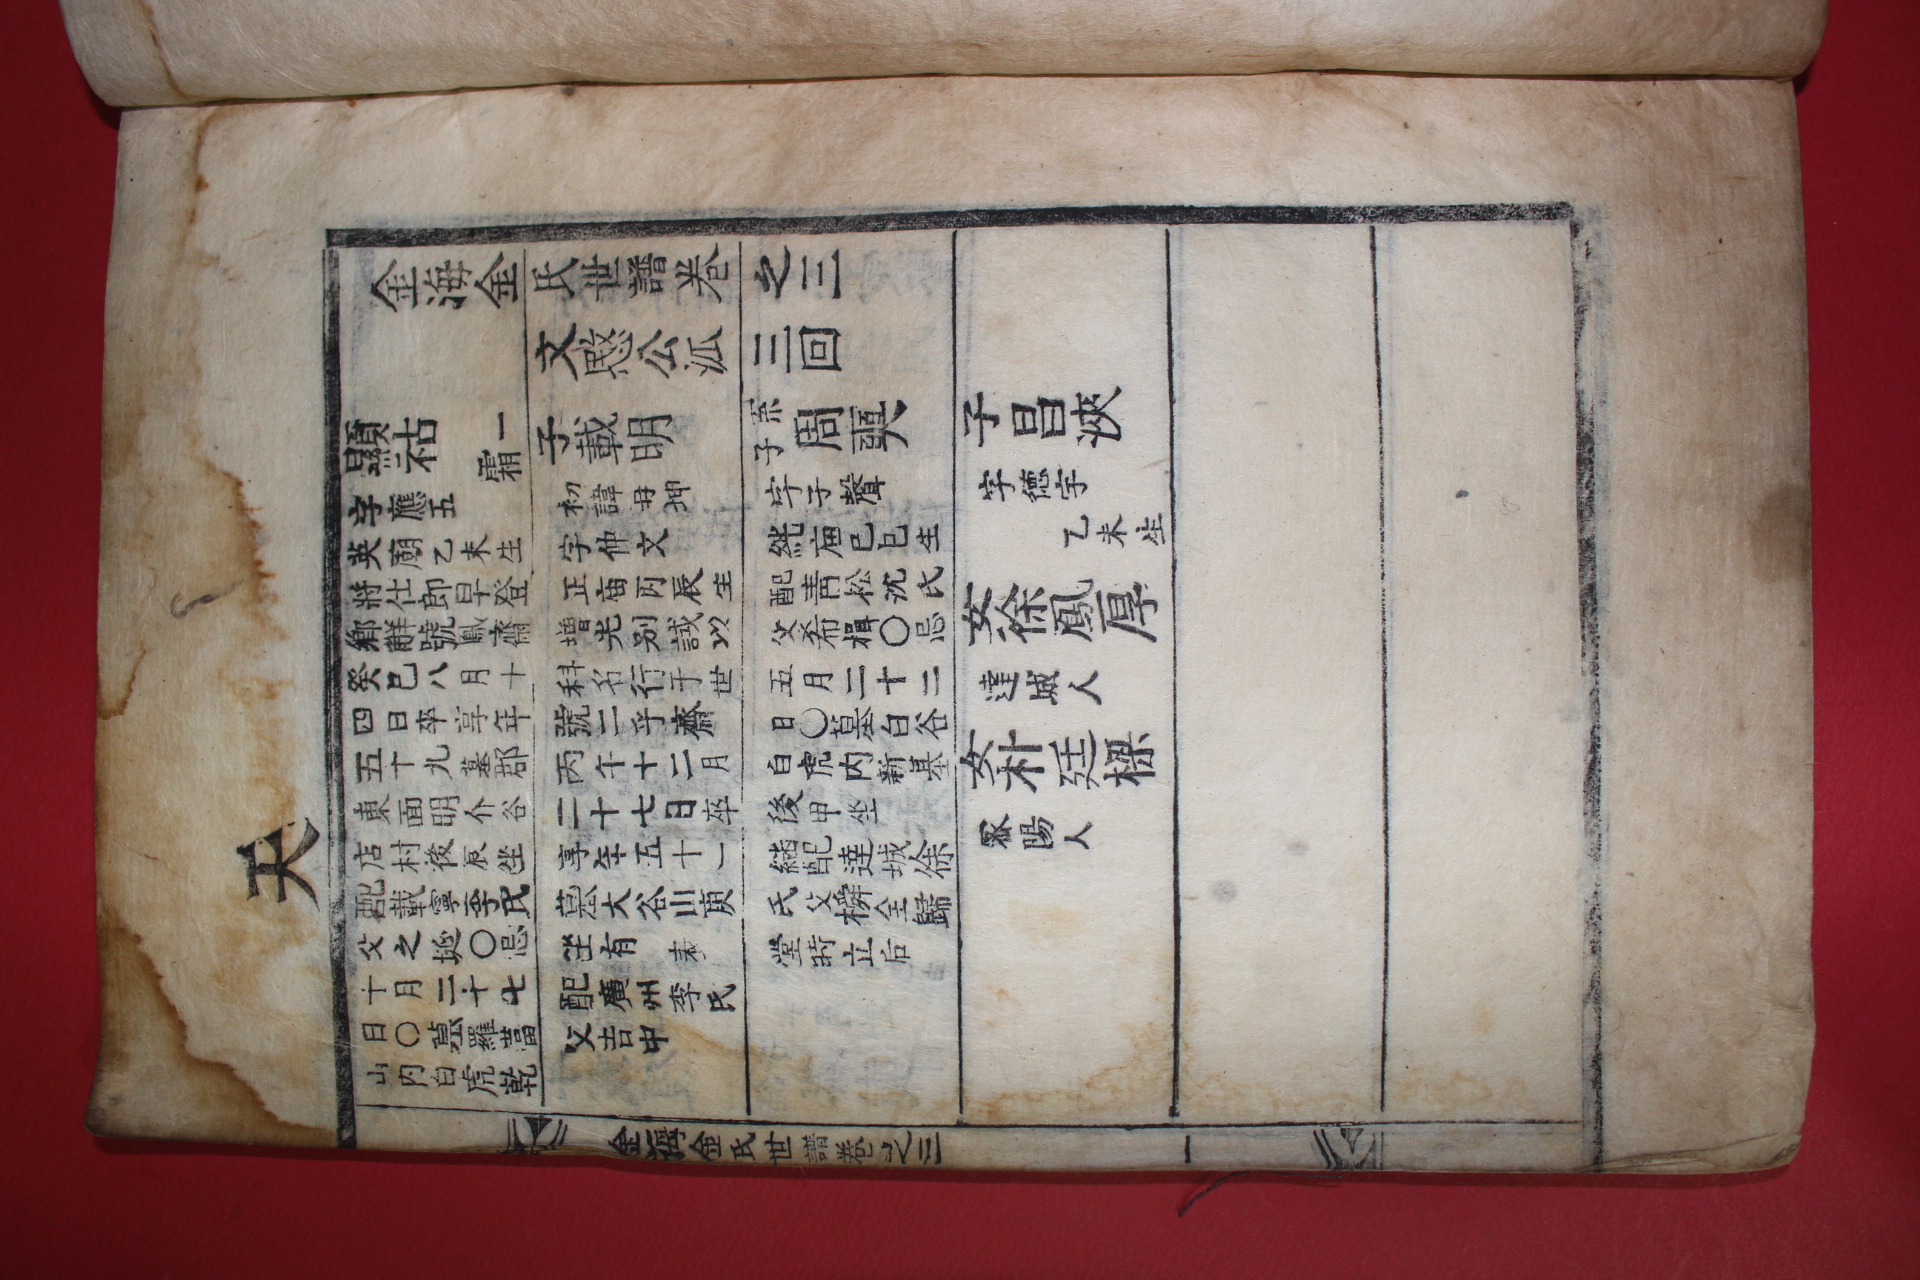 天
金海金氏世譜卷之三
文愍公派 三回
顯祜
霜一
字應五
英廟乙未生
將仕郎早登
鄕解號鳳齋
癸巳八月十
四日卒享年
五十九墓郡
東面明介谷
店村後辰坐
配載寧李氏
父之埏〇忌
十月二十七
日〇墓羅蓄
山內白虎乾
子載明
初諱母坤
字仲文
正庙丙辰生
增光別誠以
科名行于世
號二乎齋
丙午十二月
二十七日卒
享年五十一
墓大谷山庚
坐有 表
配廣州李氏
父吉中
系子周奭
字子聲
純庙己巳生
配靑松沈氏
父希楫〇忌
五月二十二
日〇墓白谷
白虎內新基
後甲坐
継配達城徐
氏父橓全歸
堂時立后
子昌浹
字德宇
乙未生
女徐鳳厚
達城人
女朴廷樑
密陽人
金海金氏世譜卷之三
一